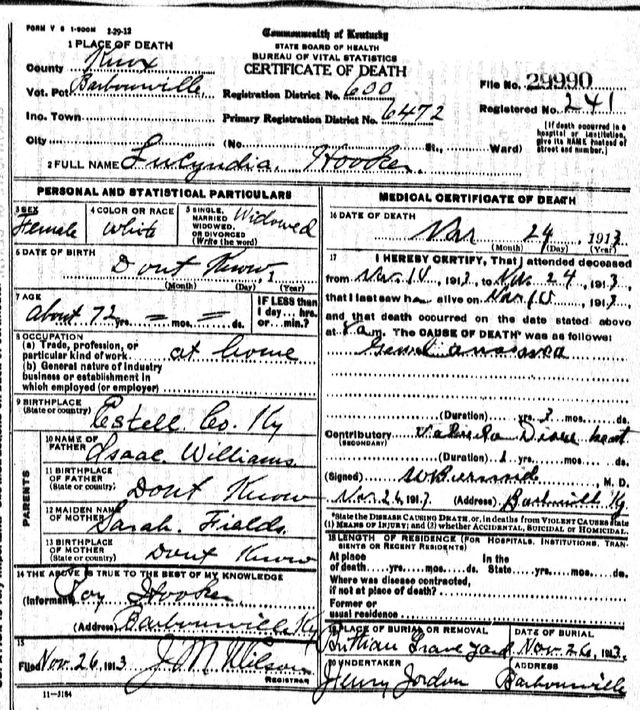 FORM V S 1-500M 2-29-12
Commonwealth of Kentucky
STATE BOARD OF HEALTH
BUREAU OF VITAL STATISTICS
CERTIFICATE OF DEATH
1 PLACE OF DEATH
County Knox
Vot. Pct Barbourville
Registration District No. 600
File No. 29990
Inc. Town
Primary Registration District No. 6472
Registered No. 241
City (No. St., Ward)
[If death occurred in a
hospital or institution,
give its NAME instead of
street and number.]
2 FULL NAME Lucyndia Hooker
PERSONAL AND STATISTICAL PARTICULARS
3 SEX Female
4 COLOR OR RACE White
5 SINGLE, MARRIED, WIDOWED, OR DIVORCED (Write the word) Widowed
6 DATE OF BIRTH
Dont Know, 1
(Month) (Day) (Year)
7 AGE
About 72 yrs. = mos. = ds.
IF LESS than
1 day... hrs.
or... min.?
8 OCCUPATION
(a) Trade, profession, or
particular kind of work at home
(b) General nature of industry
business or establishment in
which employed (or employer)
9 BIRTHPLACE
(State or country) Estell Co. Ky
PARENTS
10 NAME OF
FATHER Isaac Williams
11 BIRTHPLACE
OF FATHER
(State or country) Dont Know
12 MAIDEN NAME
OF MOTHER Sarah Fields
13 BIRTHPLACE
OF MOTHER
(State or country) Dont Know
14 THE ABOVE IS TRUE TO THE BEST OF MY KNOWLEDGE
(Informant) Hooker
(Address) Barbourville Ky
15
Filed Nov. 26, 1913 J M Wilson
REGISTRAR
11-3184
MEDICAL CERTIFICATE OF DEATH
16 DATE OF DEATH
24 1913
(Month) (Day) (Year)
17 I HEREBY CERTIFY, That I attended deceased
from 1913 to Nov. 24, 1913,
that I last saw h alive on 1913,
and that death occurred on the date stated above
at am. The CAUSE OF DEATH was as follows:
(Duration) yrs. mos. ds.
Contributory heart
(SECONDARY)
(Duration) yrs. mos. ds.
(Signed) M. D.
26, 1913 (Address) Barbourville Ky.
*State the DISEASE CAUSING DEATH, or, in deaths from VIOLENT CAUSES state
(1) MEANS OF INJURY; and (2) whether ACCIDENTAL, SUICIDAL or HOMICIDAL.
18 LENGTH OF RESIDENCE (FOR HOSPITALS, INSTITUTIONS, TRAN-
SIENTS OR RECENT RESIDENTS)
At place In the
of death yrs. mos. ds. State yrs. mos. ds.
Where was disease contracted,
if not at place of death?
Former or
usual residence
19 PLACE OF BURIAL OR REMOVAL DATE OF BURIAL
Grave Yard Nov 26, 1913
20 UNDERTAKER ADDRESS
Henry Jordon Barbourville